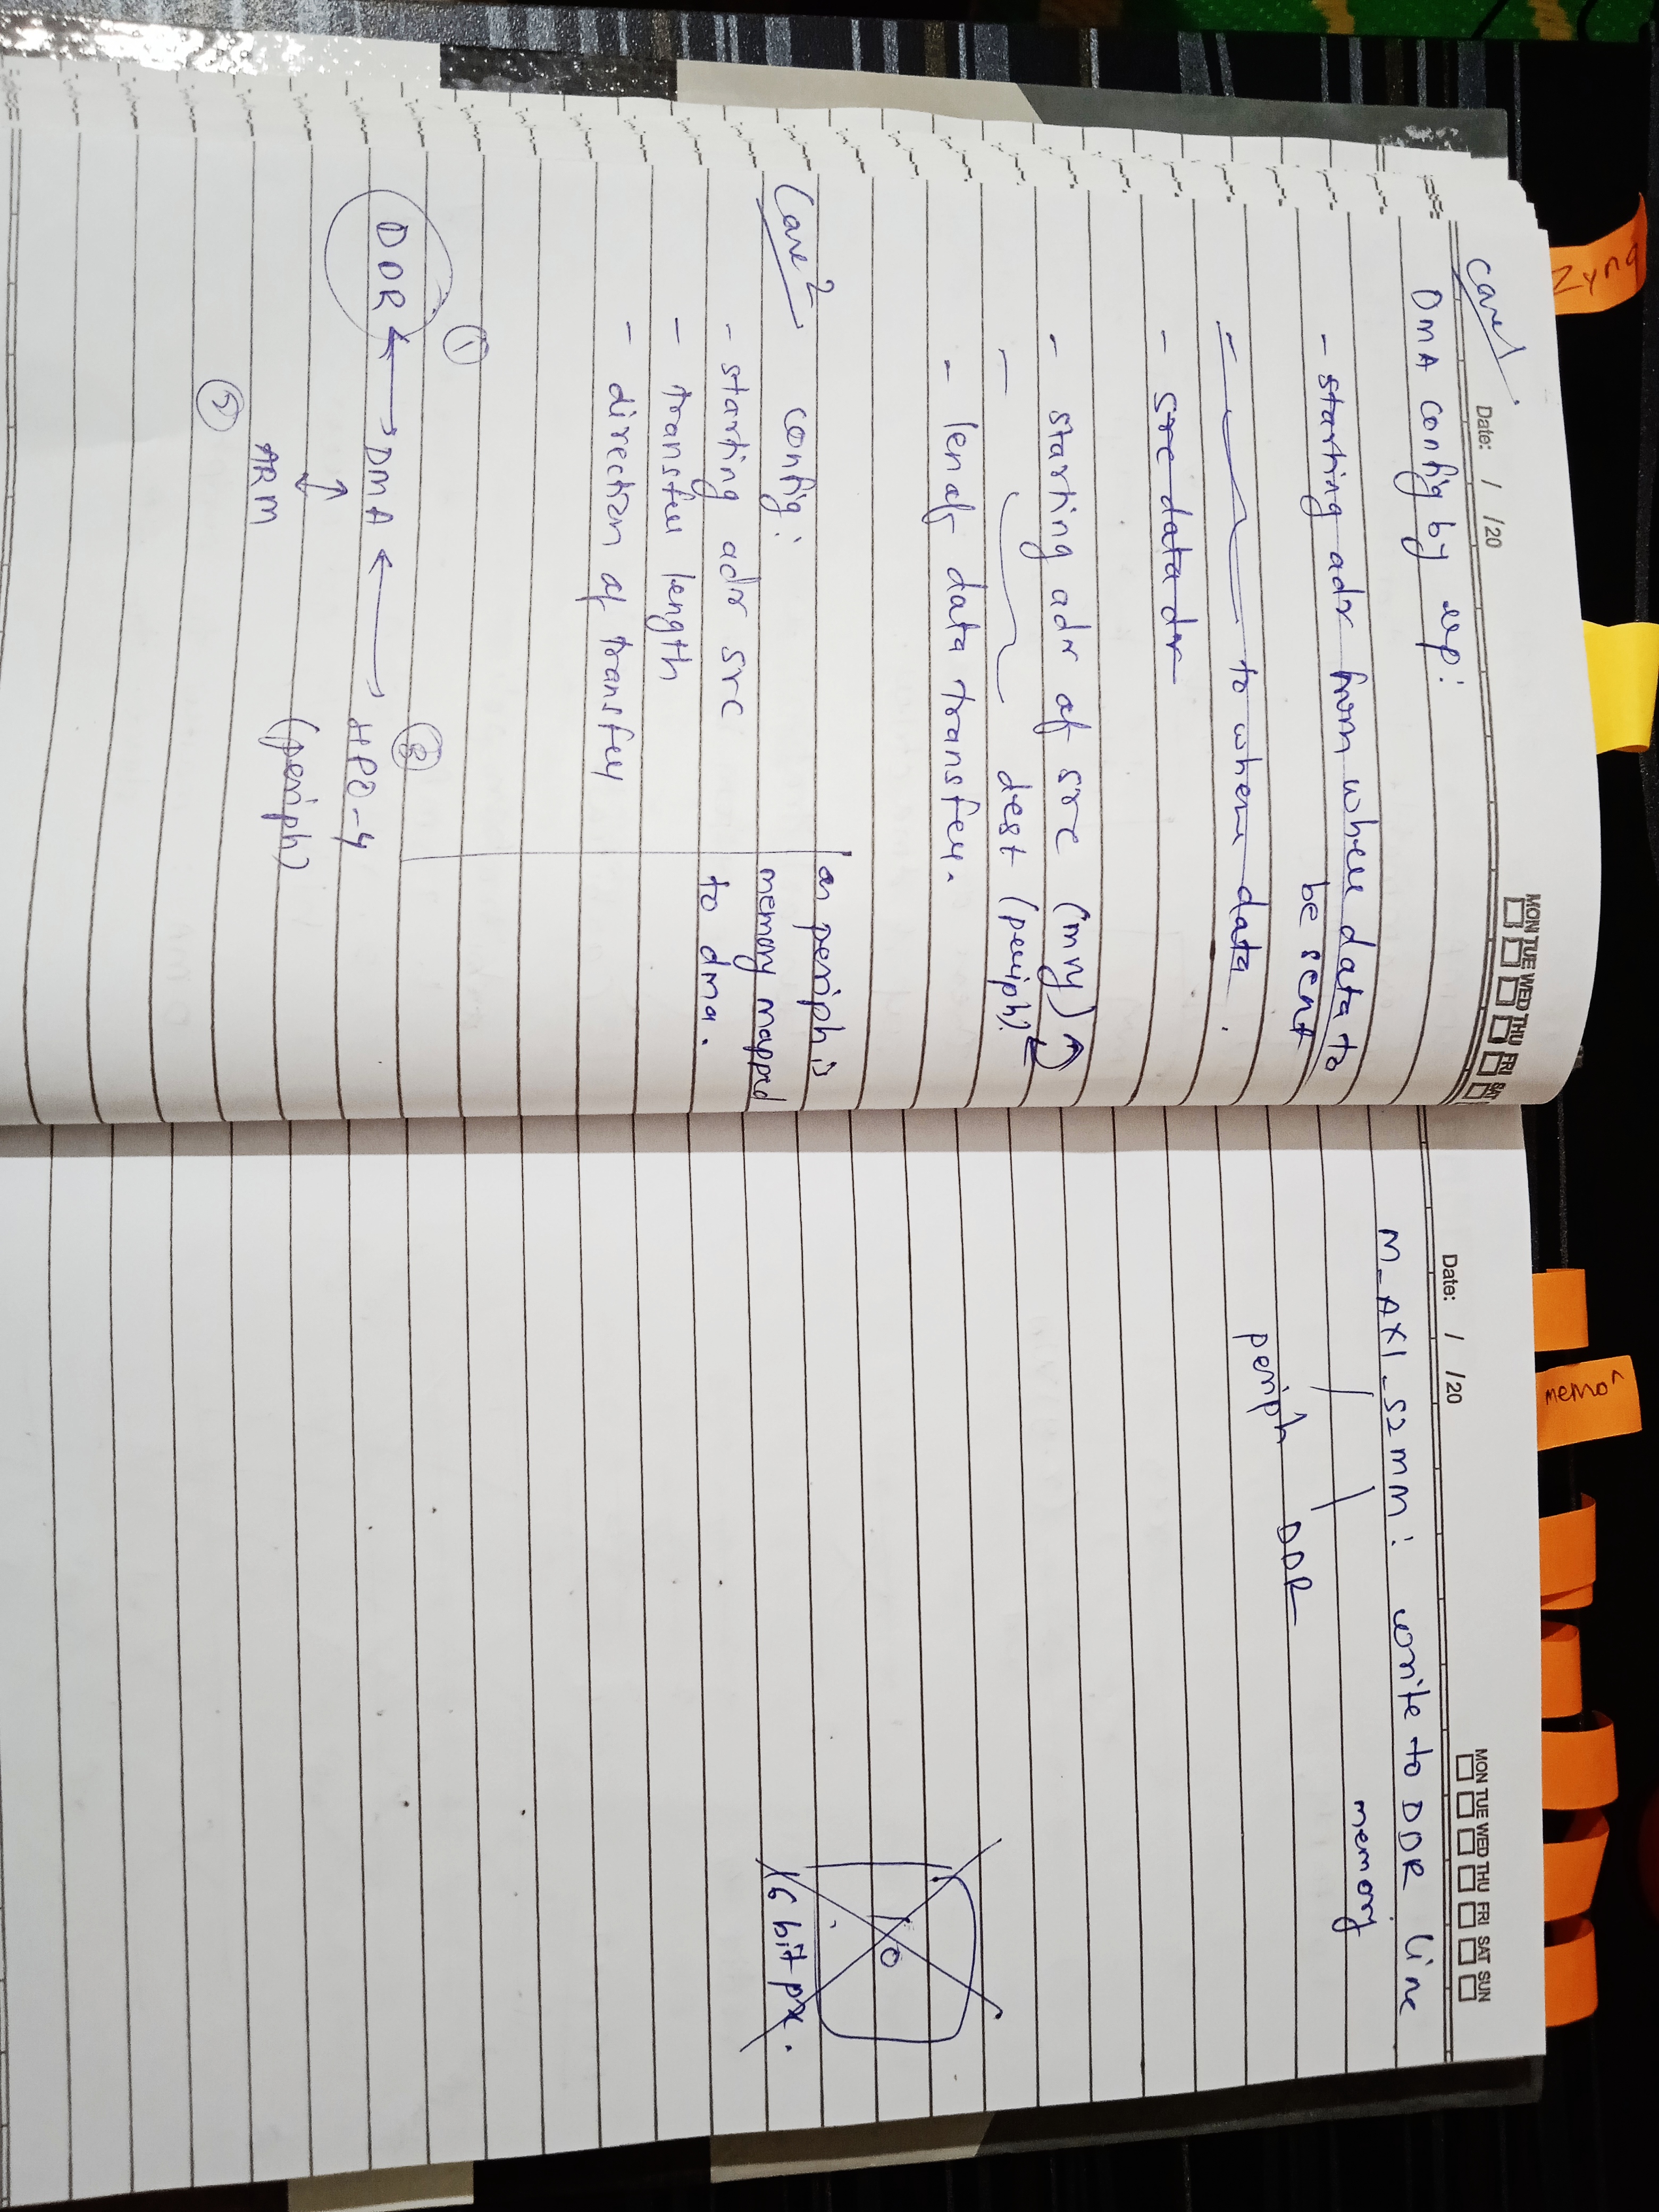 Zynq
Date: / /20
MON TUE WED THU FRI SAT
Case 1
DMA config by up:
- starting adr from where data to
be sent
- to where data
- src data dr
- starting adr of src (mry)
- dest (periph).
- len of data transfer.
Case 2
config:
- starting adr src
- transfer length
- direction of transfer
on periph is
memory mapped
to dma.
1
3
DDR DMA HP0-4
(periph)
ARM
2
memor
Date: / /20
MON TUE WED THU FRI SAT SUN
M_AXI_S2MM: write to DDR line
memory
periph DDR
0
16 bit px.